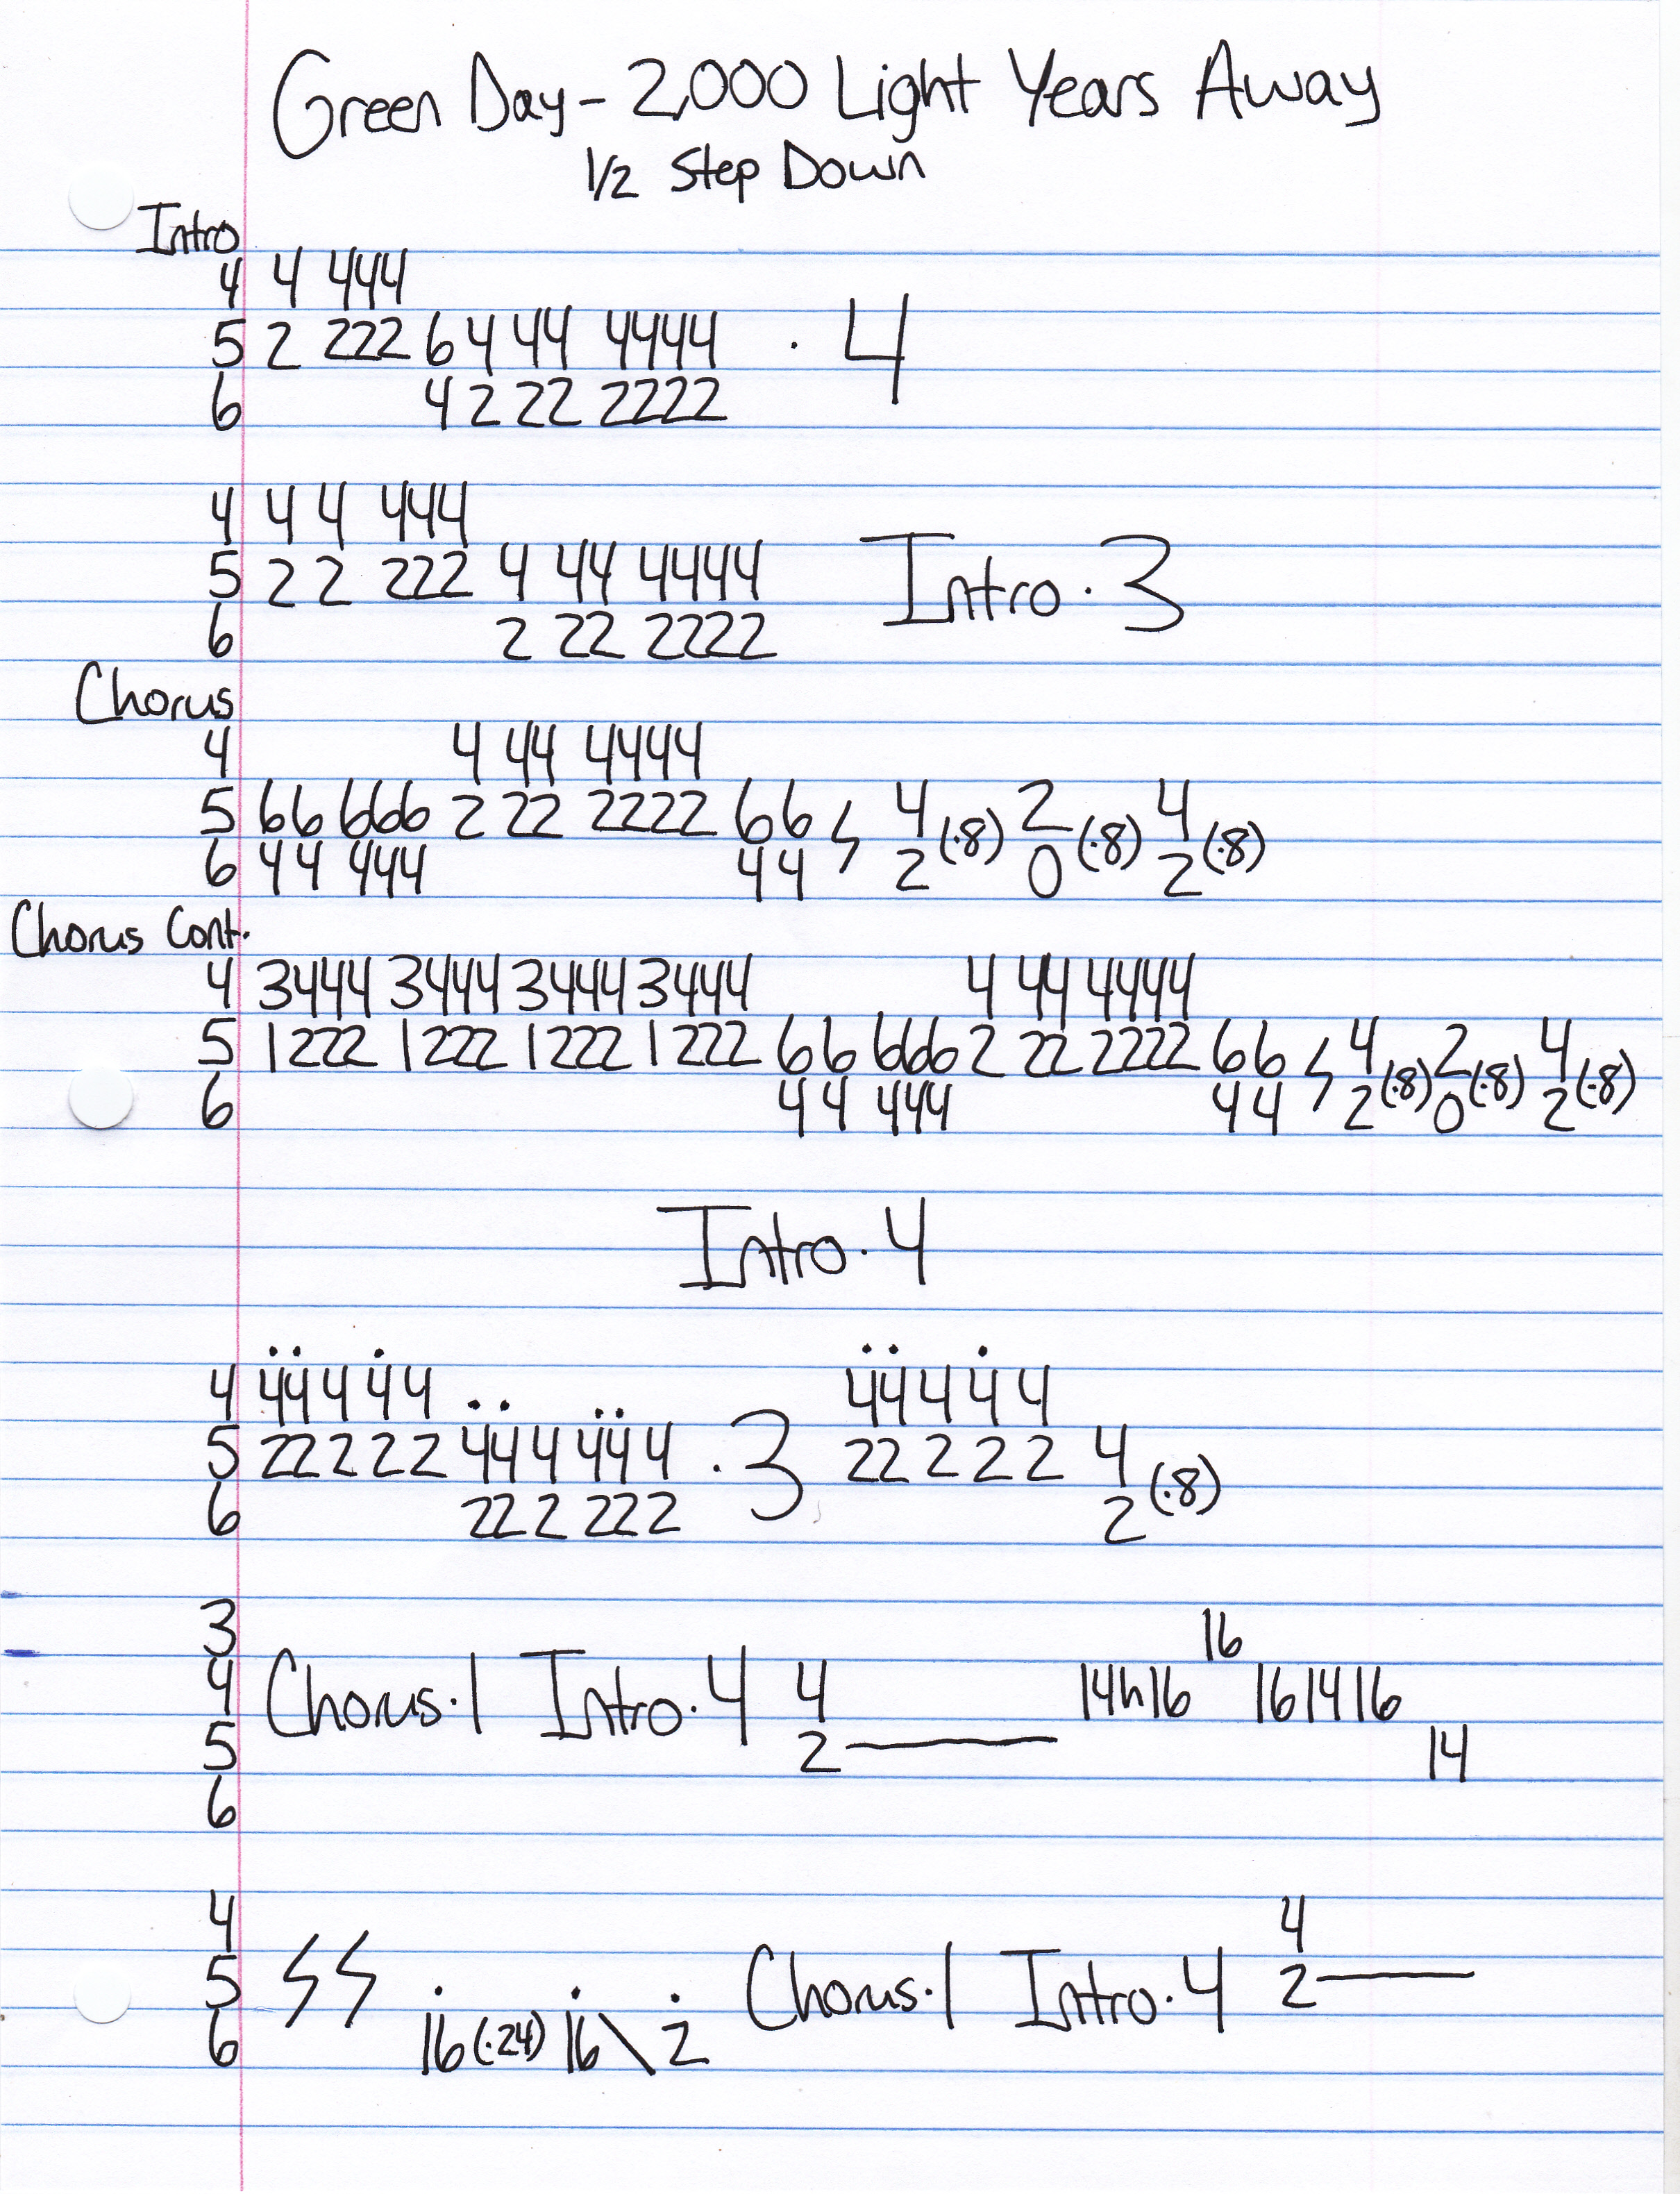 Green Day - 2,000 Light Years Away
1/2 Step Down
Intro
4 4 444
5 2 222 6 4 44 4444 · 4
6 4 2 22 2222
4 4 4 444
5 2 2 222 4 44 4444 Intro · 3
6 2 22 2222
Chorus
4 4 44 4444
5 66 666 2 22 2222 66 4 (·8) 2 (·8) 4 (·8)
6 44 444 44 2 0 2
Chorus Cont.
4 3444 3444 3444 3444 4 44 4444
5 1222 1222 1222 1222 66 666 2 22 2222 66 4 (·8) 2 (·8) 4 (·8)
6 44 444 44 2 0 2
Intro · 4
4 44 4 4 4 44 4 4 4
5 22 2 2 2 44 4 44 4 · 3 22 2 2 2 4 (·8)
6 22 2 22 2 2
3 16
4 Chorus · 1 Intro · 4 4 14h16 16 14 16
5 2 14
6
4 4
5 Chorus · 1 Intro · 4 2
6 16 (·24) 16 \ 2